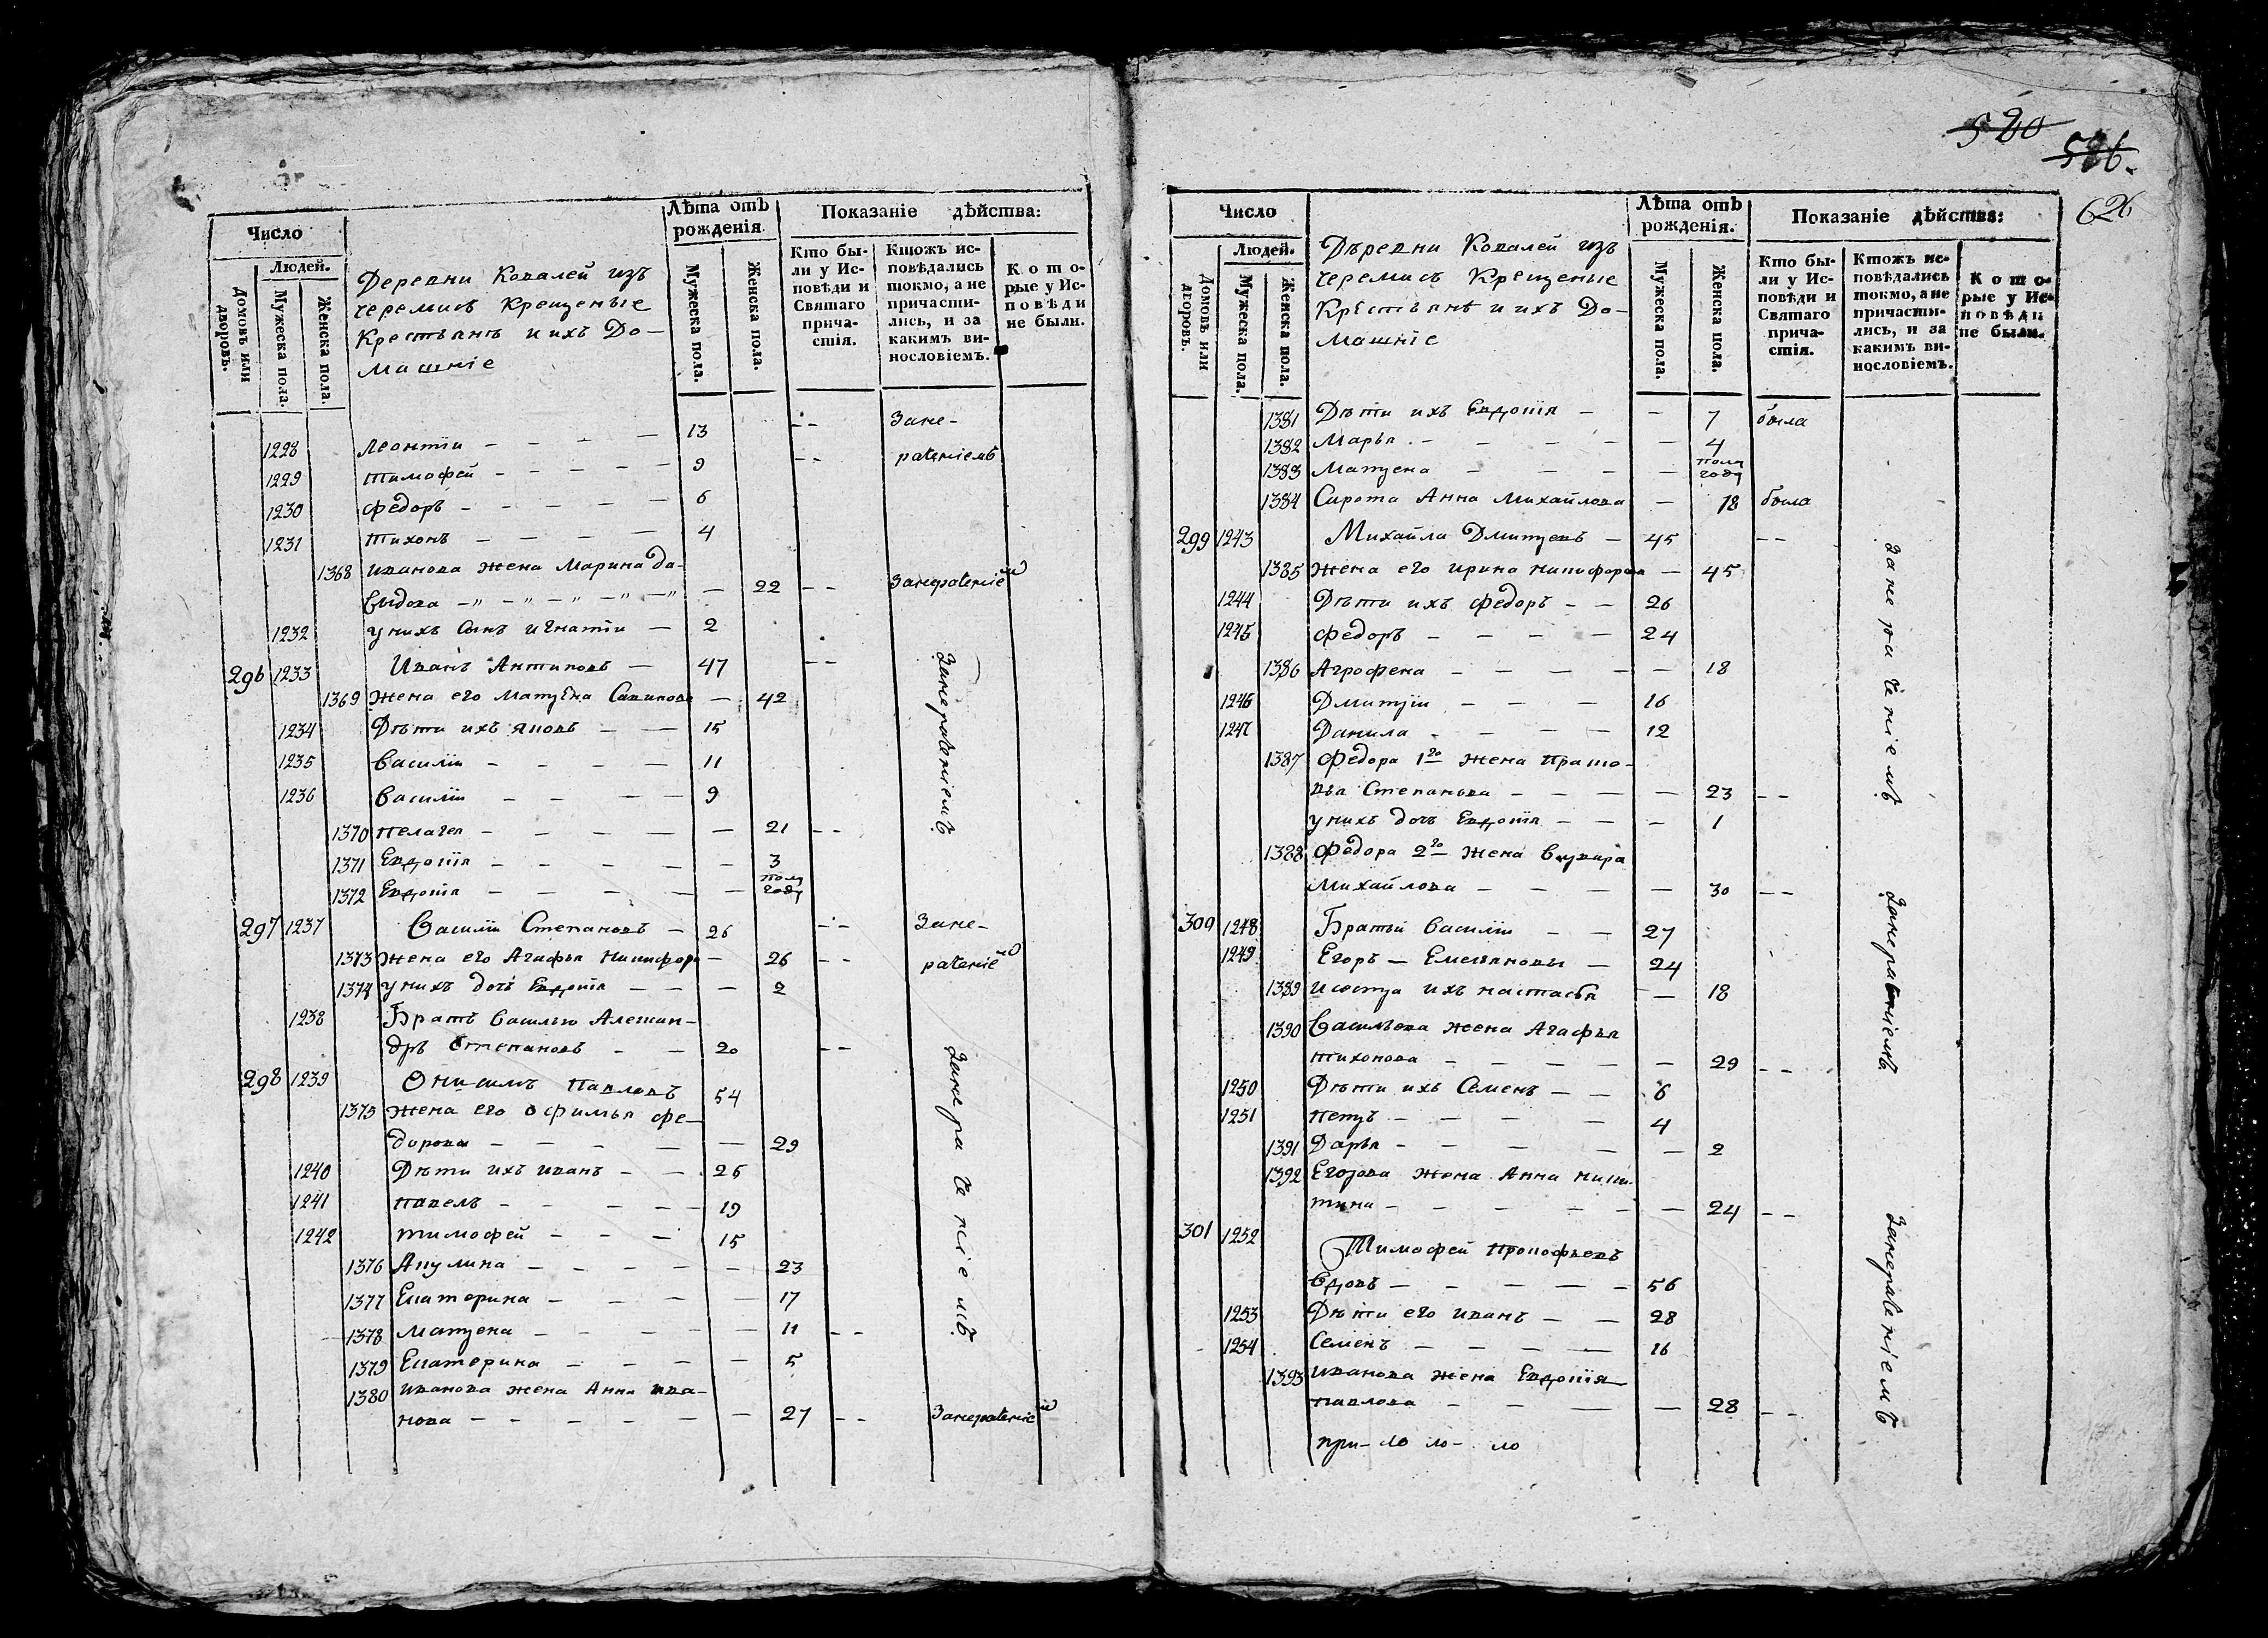 Число
Людей.
Домовъ или дворовъ.
Мужеска пола.
Женска пола.
Деревни Ковалей изъ
черемисъ Крещеные
Крестьянъ и ихъ До-
машніе
Лѣта отъ рожденія.
Мужеска пола.
Женска пола.
Показаніе дѣйства:
Кто бы-
ли у Ис-
повѣди и
Святаго
прича-
стія.
Ктожъ ис-
повѣдались
токмо, а не
причасти-
лись, и за
какимъ ви-
нословіемъ.
Кото-
рые у Ис-
повѣди
не были.
1228 Леонтіи — — — — 13 - - Зане-
1229 тимофей — — — — — 9 - - раченіемъ
1230 федоръ — — — — — 6
1231 тихонъ — — — — 4
1368 иванова жена Марина да-
выдова — 22 - - Занераченіемъ
1232 у нихъ сынъ игнатіи — 2
296 1233 Иванъ Антиповъ — 47 - - Занераченіемъ
1369 жена его матрена Савинова — 42
1234 Дѣти ихъ яковъ — — 15
1235 василіи — — — — 11
1236 василіи — — — — 9
1370 пелагея — — — — — 21 - -
1371 Евдокія — — — — — 3
1372 Евдокія — — — — — полу году
297 1237 Василіи Степановъ — 26 - - Зане-
1373 жена его Агафья никифоро — 26 - - раченіемъ
1374 у нихъ дочь Евдокія — — — 2
1238 Братъ василью Алексан-
дръ Степановъ — — 20 - -
298 1239 Онисимъ павловъ 54 Занераченіемъ
1375 жена его офимья фе-
дорова — — — — — 29
1240 Дѣти ихъ иванъ — — 26
1241 павелъ — — — — — 19
1242 тимофей — — — 15
1376 Акулина — — — — — 23
1377 Екатерина — — — — 17
1378 матрена — — — — — 11 - -
1379 Екатерина — — — — 5
1380 иванова жена Анна ива-
нова — — — — — — 27 - - Занераченіемъ
520
526.
626
Число
Людей.
Домовъ или дворовъ.
Мужеска пола.
Женска пола.
Деревни Ковалей изъ
черемисъ Крещеные
Крестьянѣ и ихъ До-
машніе
Лѣта отъ рожденія.
Мужеска пола.
Женска пола.
Показаніе дѣйства:
Кто бы-
ли у Ис-
повѣди и
Святаго
прича-
стія.
Ктожъ ис-
повѣдались
токмо, а не
причасти-
лись, и за
какимъ ви-
нословіемъ.
Кото-
рые у Ис-
повѣди
не были.
1381 Дѣти ихъ Евдокія — — 7 была
1382 Марья — — — — — 4
1383 Матрена — — — — полу году
1384 Сирота Анна Михайлова — 18 была
299 1243 Михайла Дмитревъ — 45 - - занераченіемъ
1385 жена его ирина никифорова — 45
1244 Дѣти ихъ федоръ — — 26
1245 федоръ — — — — 24
1386 Агрофена — — — — — 18
1246 Дмитріи — — — 16
1247 Данила — — — — 12
1387 Федора 1го жена праско-
вья Степанова — — — — 23 - -
у нихъ дочь Евдокія — — — 1
1388 Федора 2го жена варвара
Михайлова — — — — — 30 - -
300 1248 Братьи василіи — — 27 занераченіемъ
1249 Егоръ — Емельяновы — 24
1389 и сестра ихъ настасья — 18
1390 Васильева жена Агафья
тихонова — — — — — 29 - -
1250 Дѣти ихъ Семенъ — — 6
1251 петръ — — — — 4
1391 Дарья — — — — — 2
1392 Егорова жена Анна ники-
тина — — — — — — 24 - -
301 1252 Тимофей прокофьевъ занераченіемъ
вдовъ — — — — — 56
1253 Дѣти его иванъ — — 28
1254 Семенъ — — — — 16
1393 иванова жена Евдокія
павлова — — — — 28 - -